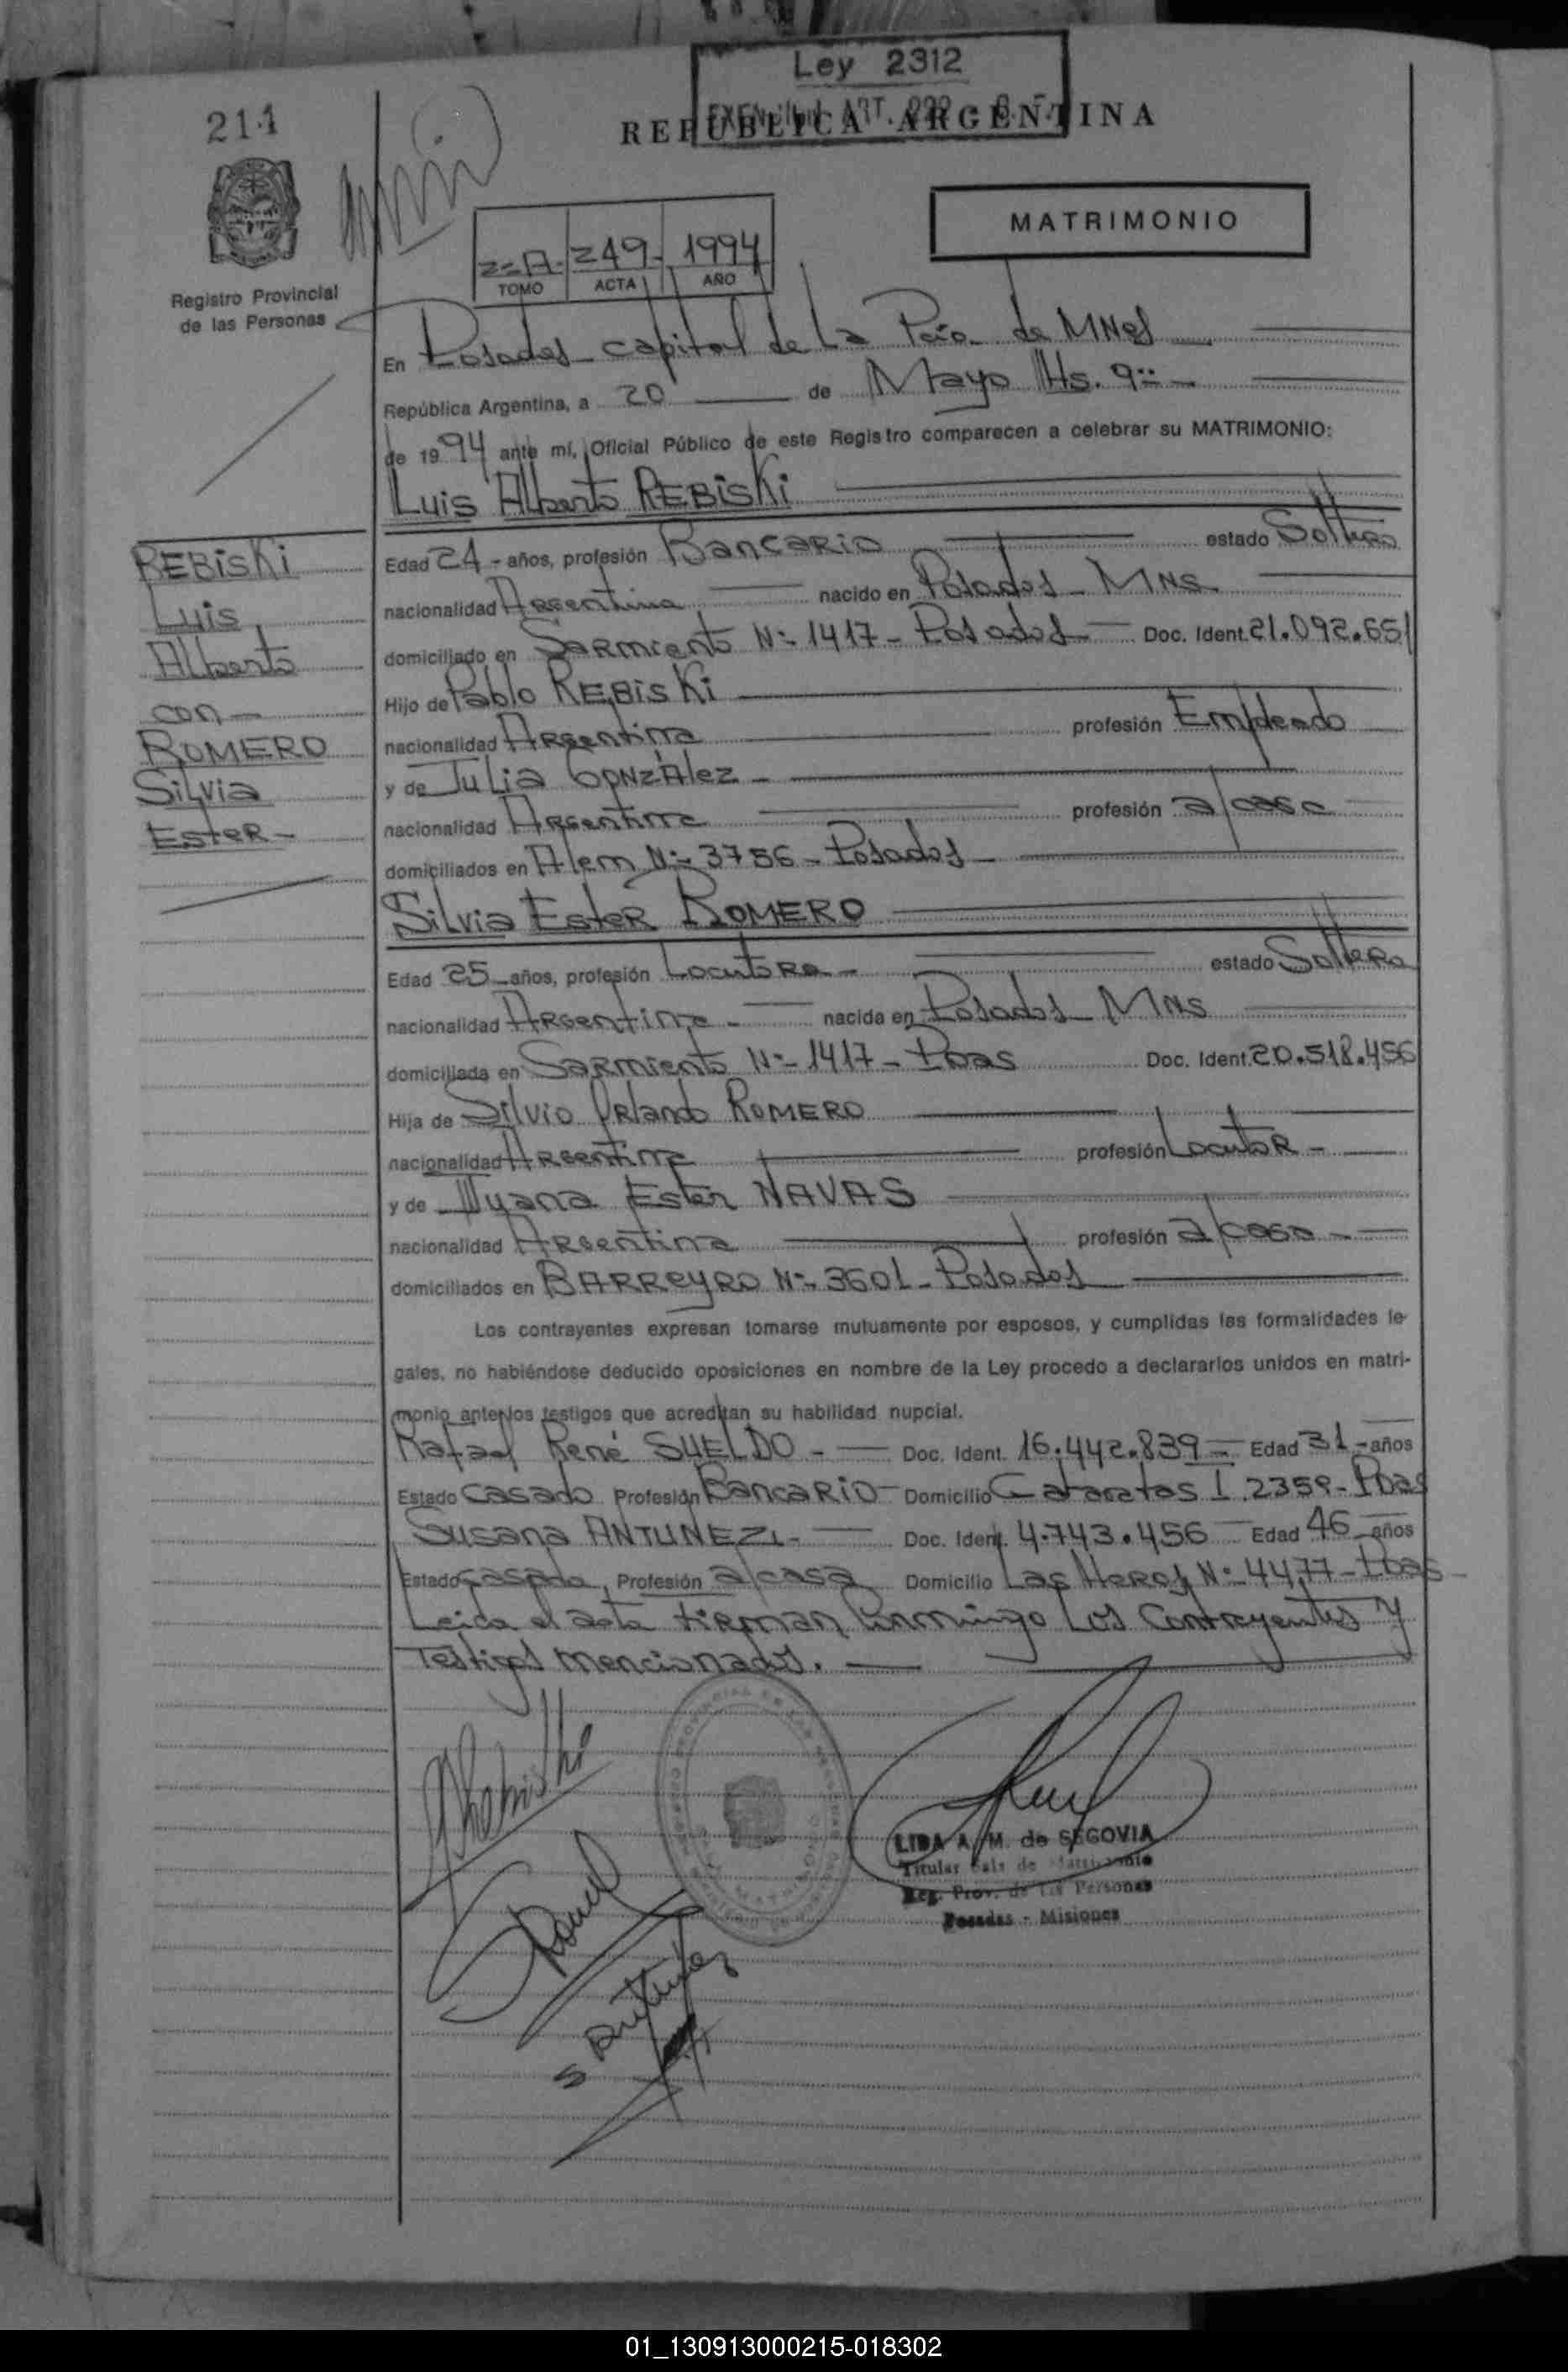 Ley 2312
211
REPUBLICA ARGENTINA
MATRIMONIO
2=A- 249- 1994
TOMO ACTA AÑO
Registro Provincial
de las Personas
En Posadas capital de La Pcia. de MNes
República Argentina, a 20 de Mayo Hs. 9
de 1994 ante mí, Oficial Público de este Registro comparecen a celebrar su MATRIMONIO:
Luis Alberto REBISKi
REBISKi
Luis
Alberto
con
ROMERO
Silvia
Ester-
Edad 24- años, profesión Bancario estado Soltero
nacionalidad Argentina nacido en Posadas - MNS
domiciliado en Sarmiento Nº 1417 - Posadas Doc. Ident. 21.092.651
Hijo de Pablo REBISKi
nacionalidad Argentina profesión Empleado
y de Julia GONZÁlez -
nacionalidad Argentina profesión a/casa
domiciliados en Alem Nº 3756 - Posadas
Silvia Ester ROMERO
Edad 25 años, profesión Locutora - estado Soltera
nacionalidad Argentina - nacida en Posadas - MNS
domiciliada en Sarmiento Nº 1417 - Pdas Doc. Ident. 20.518.456
Hija de Silvio Orlando ROMERO
nacionalidad Argentina profesión Locutor -
y de Ester NAVAS
nacionalidad Argentina profesión a/casa -
domiciliados en BARReyRO Nº 3601 - Posadas
Los contrayentes expresan tomarse mutuamente por esposos, y cumplidas las formalidades le-
gales, no habiéndose deducido oposiciones en nombre de la Ley procedo a declararlos unidos en matri-
monio ante los testigos que acreditan su habilidad nupcial.
Rafael René SUELDO - Doc. Ident. 16.442.839 Edad 31- años
Estado Casado Profesión Bancario Domicilio Cataratas I 2359 - Pdas
Susana ANTUNEZ - Doc. Ident. 4.743.456 Edad 46 años
Estado Casada, Profesión a/casa Domicilio Las Heras Nº 4477 - Pdas -
Leida el acta firman conmigo Los Contrayentes y
Testigos mencionados.
LIDA A. M. de SEGOVIA
Titular de Matrimonio
Reg. Prov. de las Personas
Posadas - Misiones
S Antunez
01_130913000215-018302